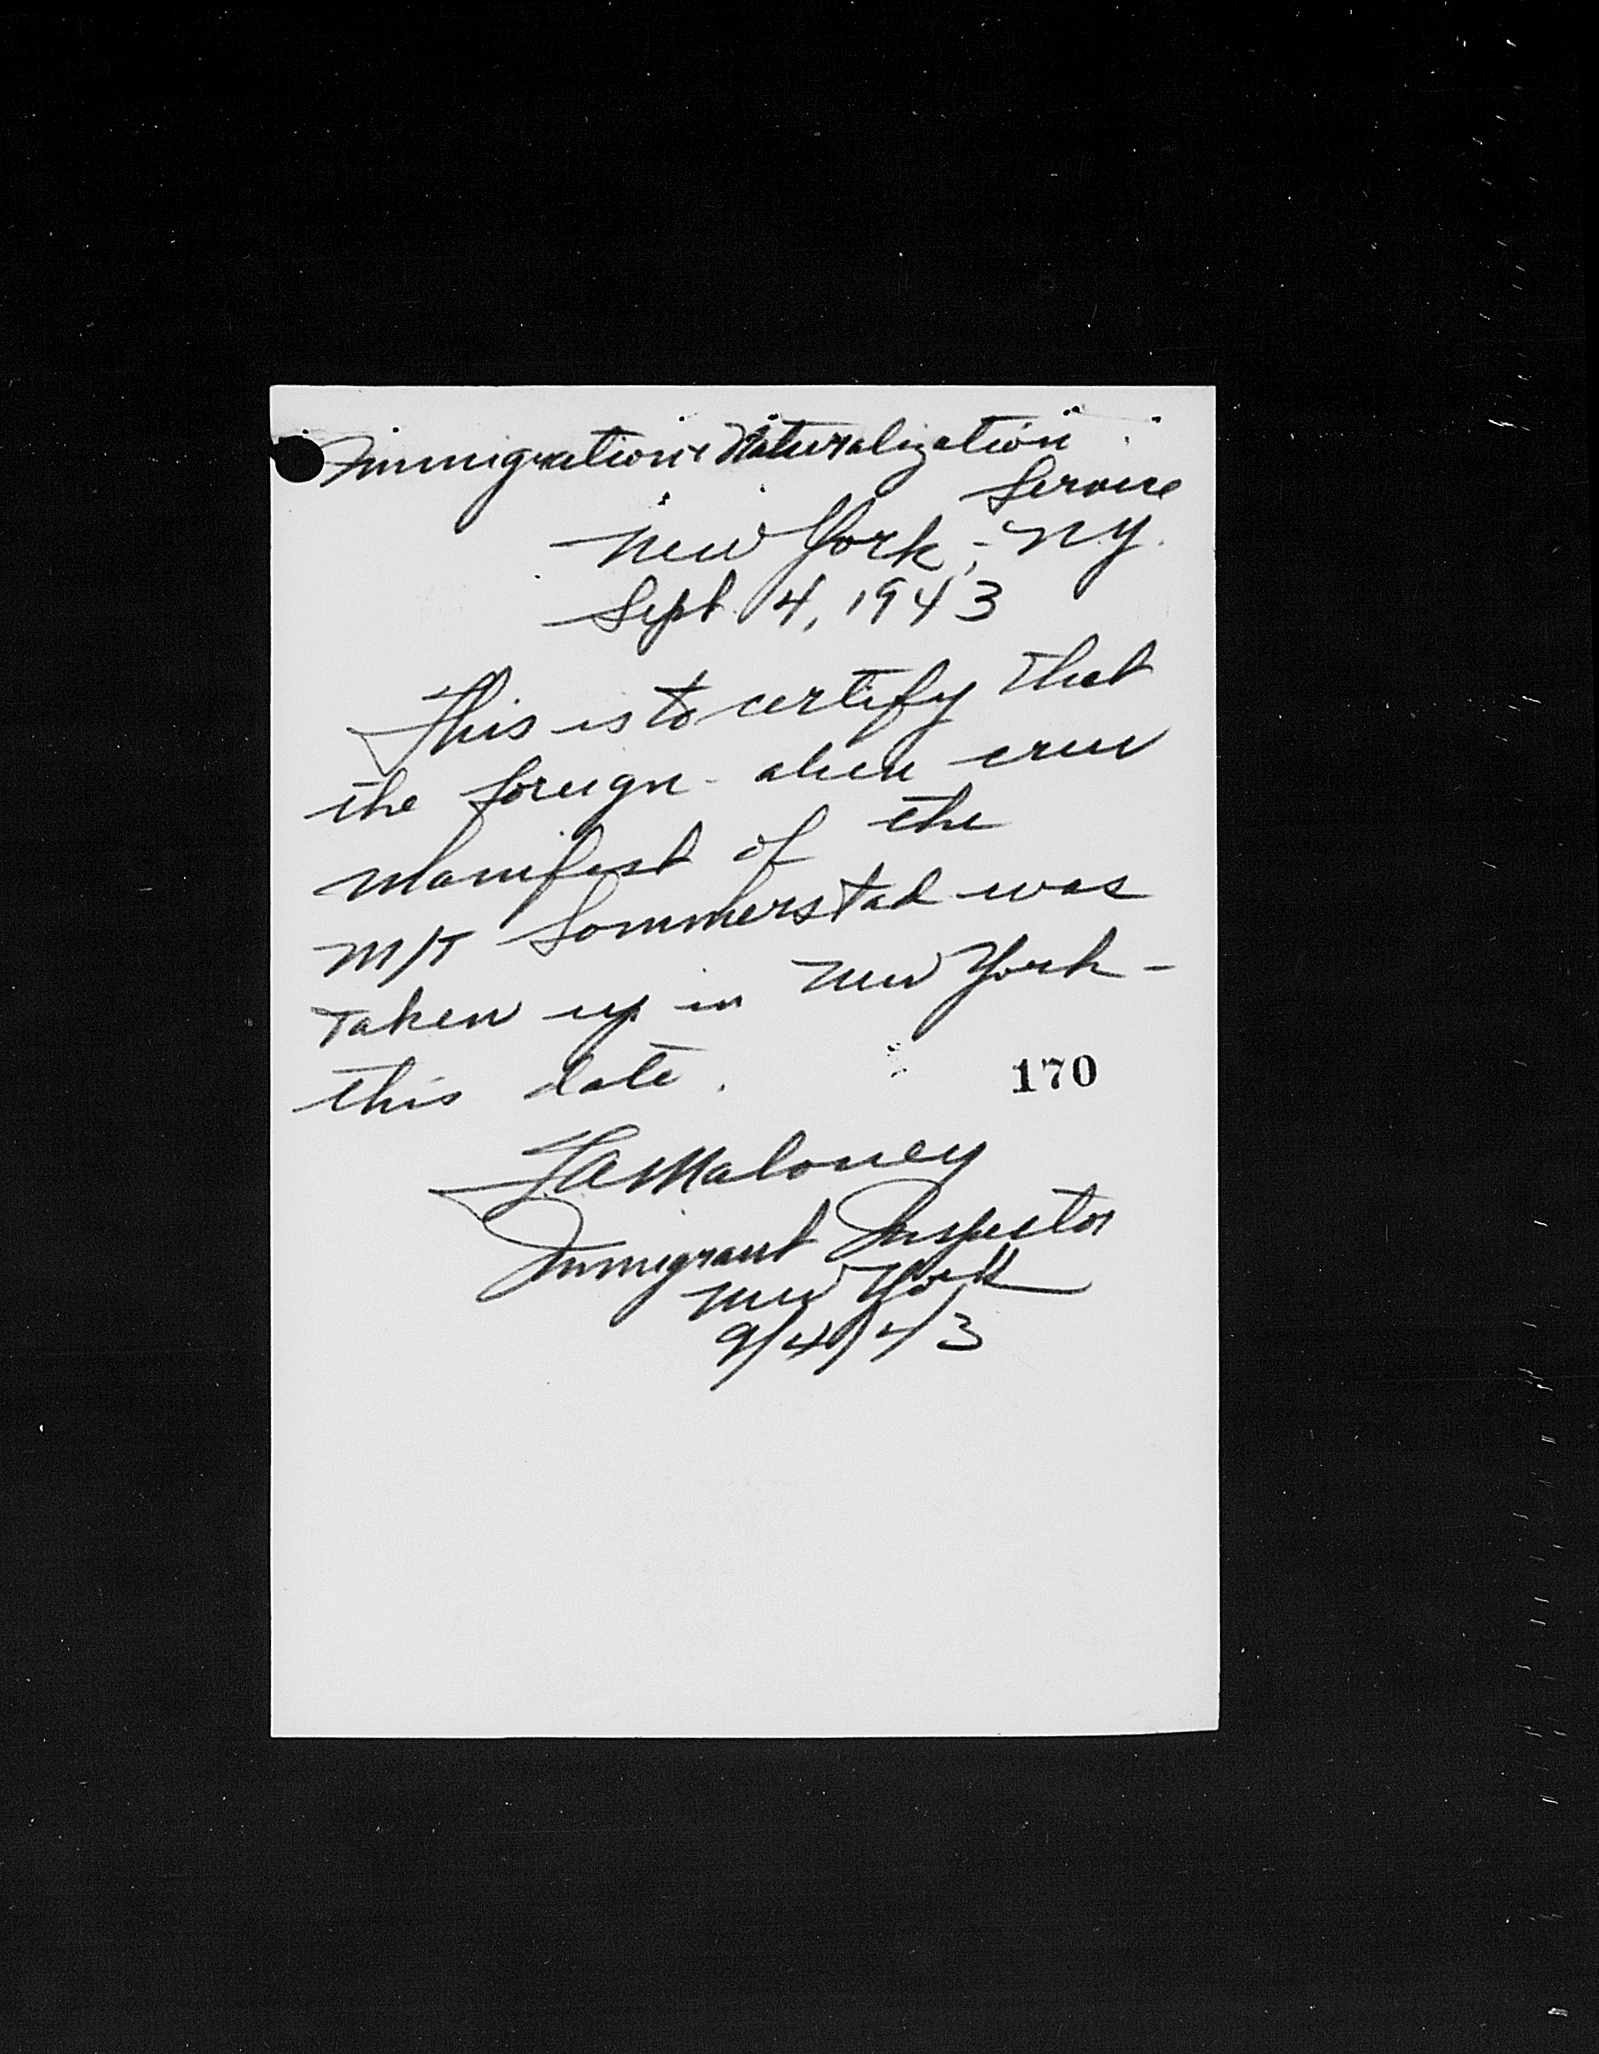 Immigration & Naturalization
Service
New York, - N.Y.
Sept 4, 1943
This is to certify that
the foreign - alien crew
manifest of the
M/T Sommerstad was
taken up in New York -
this date.
170
Maloney
Immigrant Inspector
New York
9/4/43